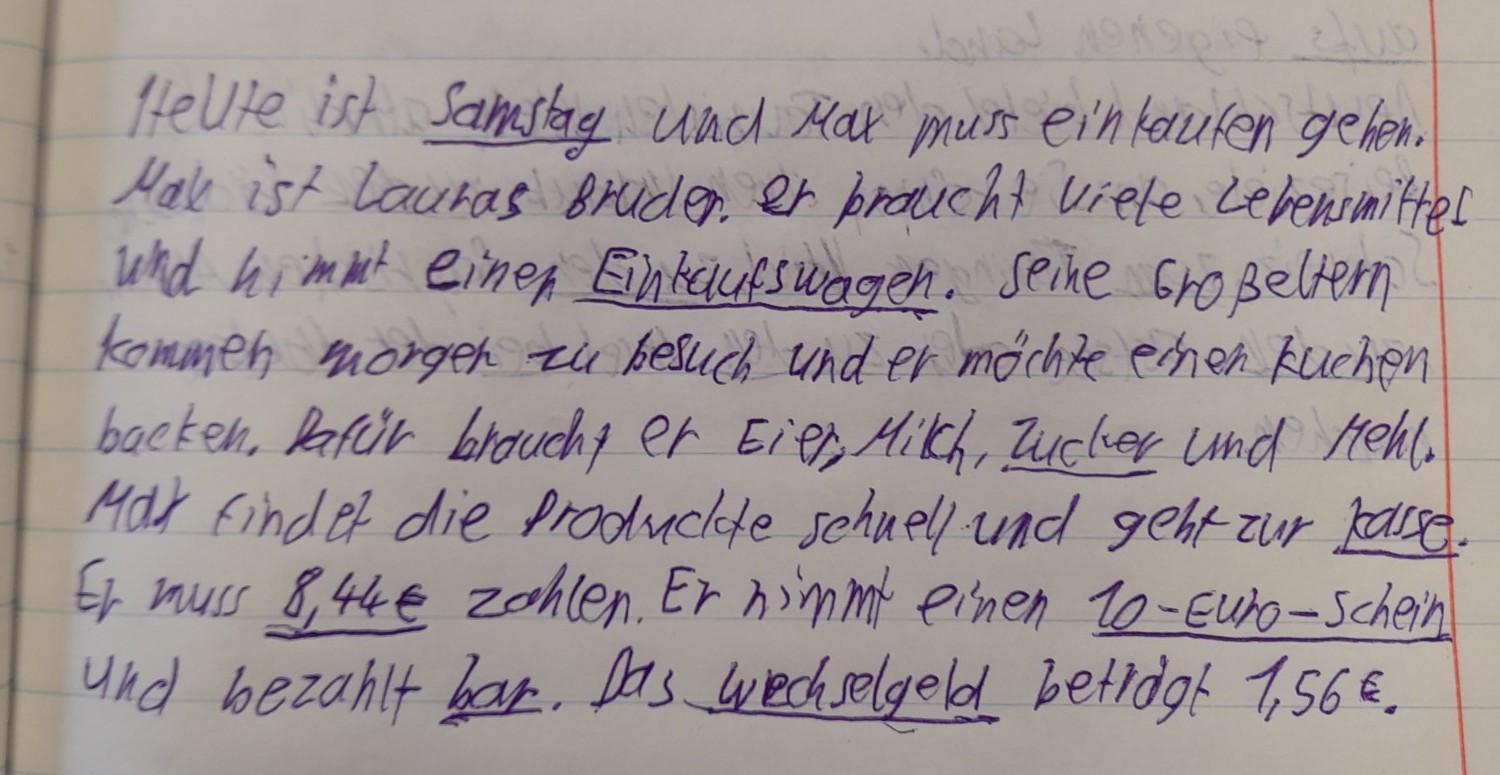 Heute ist Samstag und Max muss einkaufen gehen.
Max ist Lauras Bruder. Er braucht viele Lebensmittel
und nimmt einen Einkaufswagen. Seine Großeltern
kommen morgen zu besuch und er möchte einen kuchen
backen. Dafür braucht er Eier, Milch, Zucker und Mehl.
Max findet die Produckte schnell und geht zur kasse.
Er muss 8,44€ zahlen. Er nimmt einen 10-Euro-Schein
und bezahlt bar. Das wechselgeld beträgt 1,56€.